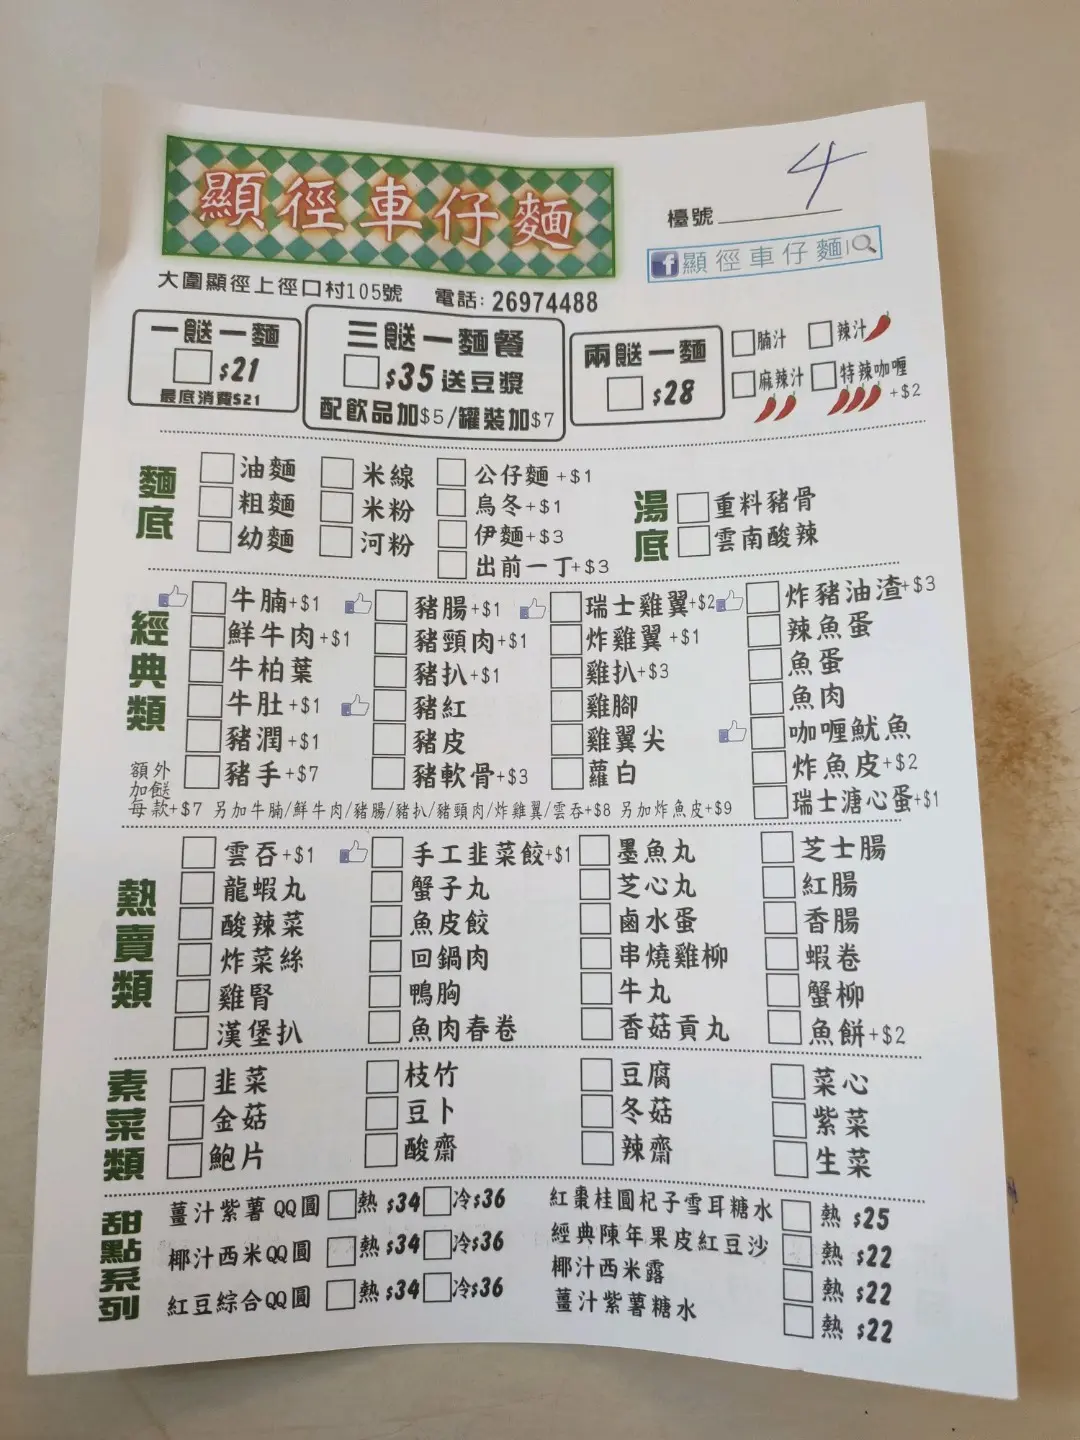 顯徑車仔麵
4
檯號
f 顯徑車仔麵
大圍顯徑上徑口村105號 電話: 26974488
一餸一麵
$21
最底消費$21
三餸一麵餐
$35送豆漿
配飲品加$5/罐裝加$7
兩餸一麵
$28
腩汁 辣汁
麻辣汁 特辣咖喱
+$2
麵底
油麵 米線 公仔麵+$1
粗麵 米粉 烏冬+$1
幼麵 河粉 伊麵+$3
出前一丁+$3
湯底
重料豬骨
雲南酸辣
經典類
牛腩+$1 豬腸+$1 瑞士雞翼+$2 炸豬油渣+$3
鮮牛肉+$1 豬頸肉+$1 炸雞翼+$1 辣魚蛋
牛柏葉 豬扒+$1 雞扒+$3 魚蛋
牛肚+$1 豬紅 雞腳 魚肉
豬潤+$1 豬皮 雞翼尖 咖喱魷魚
豬手+$7 豬軟骨+$3 蘿白 炸魚皮+$2
瑞士溏心蛋+$1
額外
加餸
每款+$7 另加牛腩/鮮牛肉/豬腸/豬扒/豬頸肉/炸雞翼/雲吞+$8 另加炸魚皮+$9
熱賣類
雲吞+$1 手工韭菜餃+$1 墨魚丸 芝士腸
龍蝦丸 蟹子丸 芝心丸 紅腸
酸辣菜 魚皮餃 鹵水蛋 香腸
炸菜絲 回鍋肉 串燒雞柳 蝦卷
雞腎 鴨胸 牛丸 蟹柳
漢堡扒 魚肉春卷 香菇貢丸 魚餅+$2
素菜類
韭菜 枝竹 豆腐 菜心
金菇 豆卜 冬菇 紫菜
鮑片 酸齋 辣齋 生菜
甜點系列
薑汁紫薯QQ圓 熱 $34 冷$36
椰汁西米QQ圓 熱 $34 冷$36
紅豆綜合QQ圓 熱 $34 冷$36
紅棗桂圓杞子雪耳糖水 熱 $25
經典陳年果皮紅豆沙 熱 $22
椰汁西米露 熱 $22
薑汁紫薯糖水 熱 $22